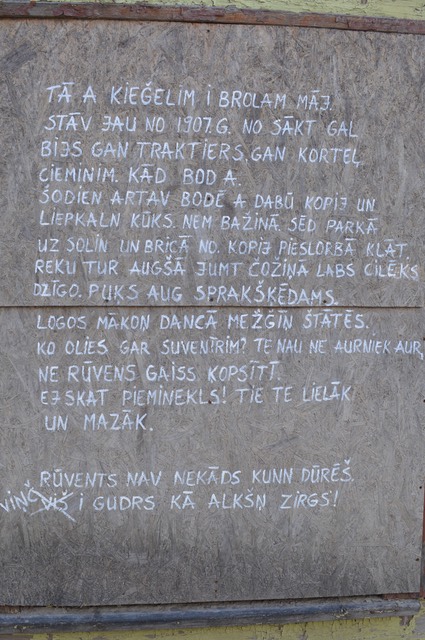 TĀ A KIEĢELIM I BROLAM MĀJ.
STĀV JAU NO 1907.G. NO SĀKT GAL
BIJS GAN TRAKTIERS, GAN KORTEĻ
CIEMINIM. KĀD BOD A.
ŠODIEN ARTAV BODĒ A DABŪ KOPIJ UN
LIEPKALN KŪKS. ŅEM BAŽIŅĀ. SĒD PARKĀ
UZ SOLIN UN BRICĀ NO. KOPIJ PIESLORBĀ KLĀT.
REKU TUR AUGŠĀ JUMT ČOŽIŅĀ LABS CILĒKS
DZĪGO. PUĶS AUG SPRAKŠĶĒDAMS.
LOGOS MĀKON DANCĀ MEŽĢĪN ŠTĀTĒS.
KO OLIES GAR SUVENĪRIM? TE NAU NE AURNIEK AUR,
NE RŪVENS GAISS KOPSĪTĪ.
EJ SKAT PIEMINEKLS! TIE TE LIELĀK
UN MAZĀK.
RŪVENTS NAV NEKĀDS KUNN DŪRĒŠ.
VIŅŠ I GUDRS KĀ ALKŠŅ ZIRGS!